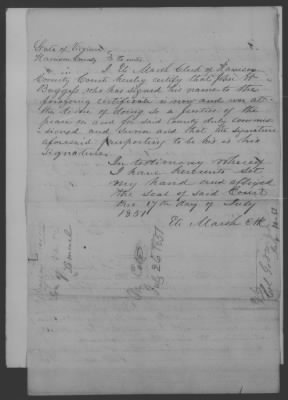 State of Virginia
Harrison County To wit
in I Eli Marsh Clerk of Harrison
County Court hereby certify that John W
Boggess who has signed his name to the
foregoing certificate is now and was at
the time of doing so a justice of the
peace in and for said County duly commis-
sioned and sworn and that the signature
aforesaid purporting to be his is his
Signature.
In testimony whereof
I have hereunto set
my hand and affixed
the seal of said Court
this 17th day of July
1851
Eli Marsh Clk
July 26 1851